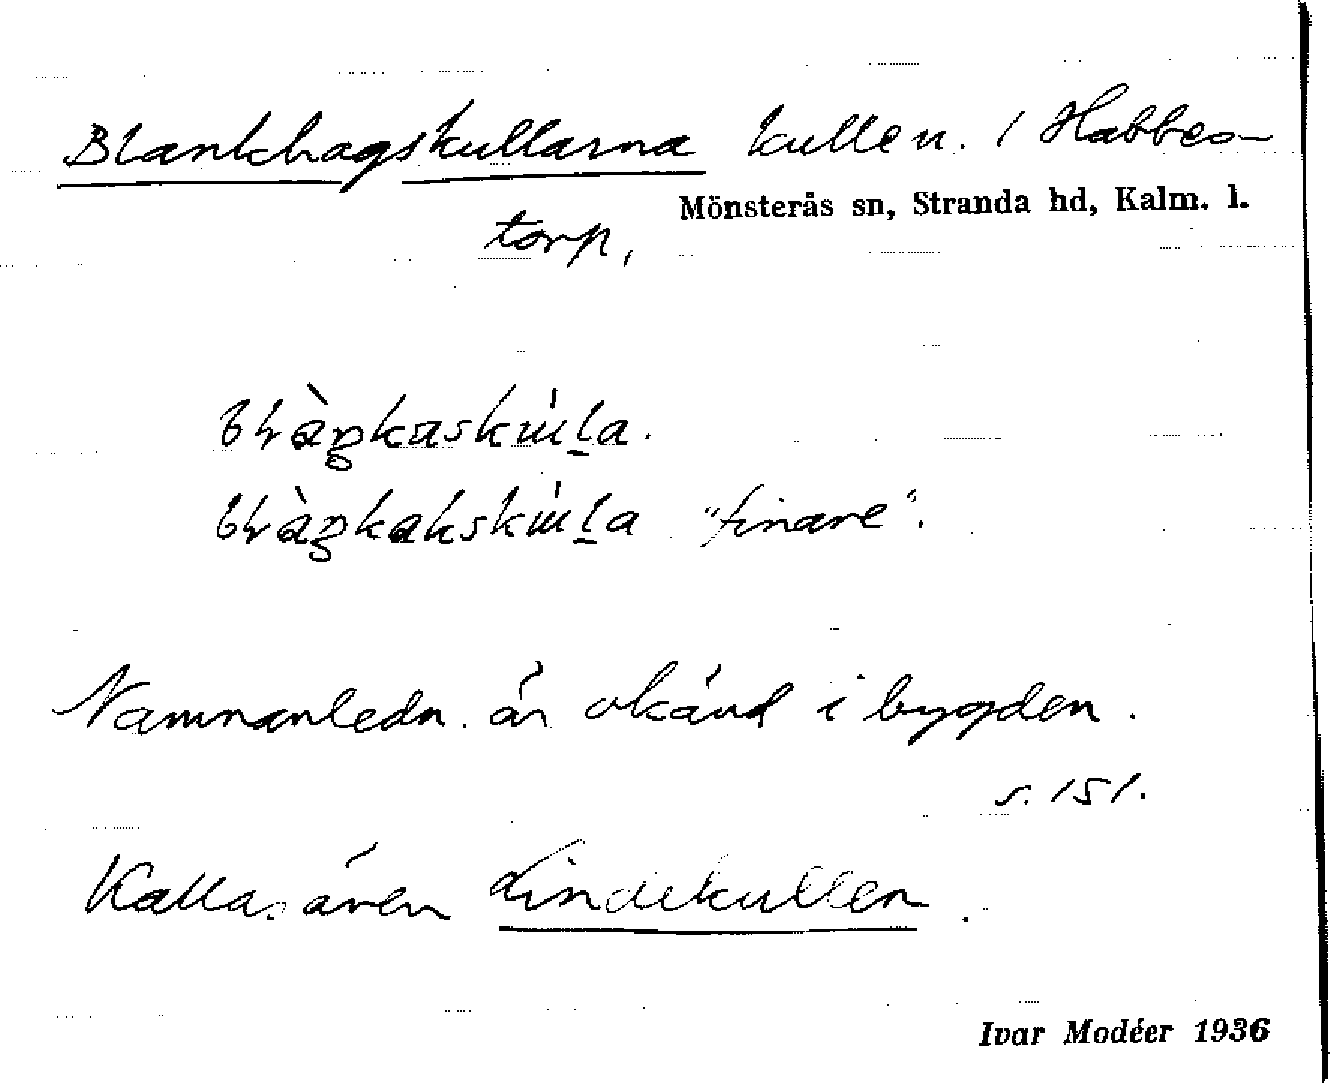 Blankhagskullarna kullen. / Habbes-
Mönsterås sn, Stranda hd, Kalm. l.
torp,
"finare".
Namnanledn. är okänd i bygden.
s. 151.
Kallas även Lindekullen.
Ivar Modéer 1936